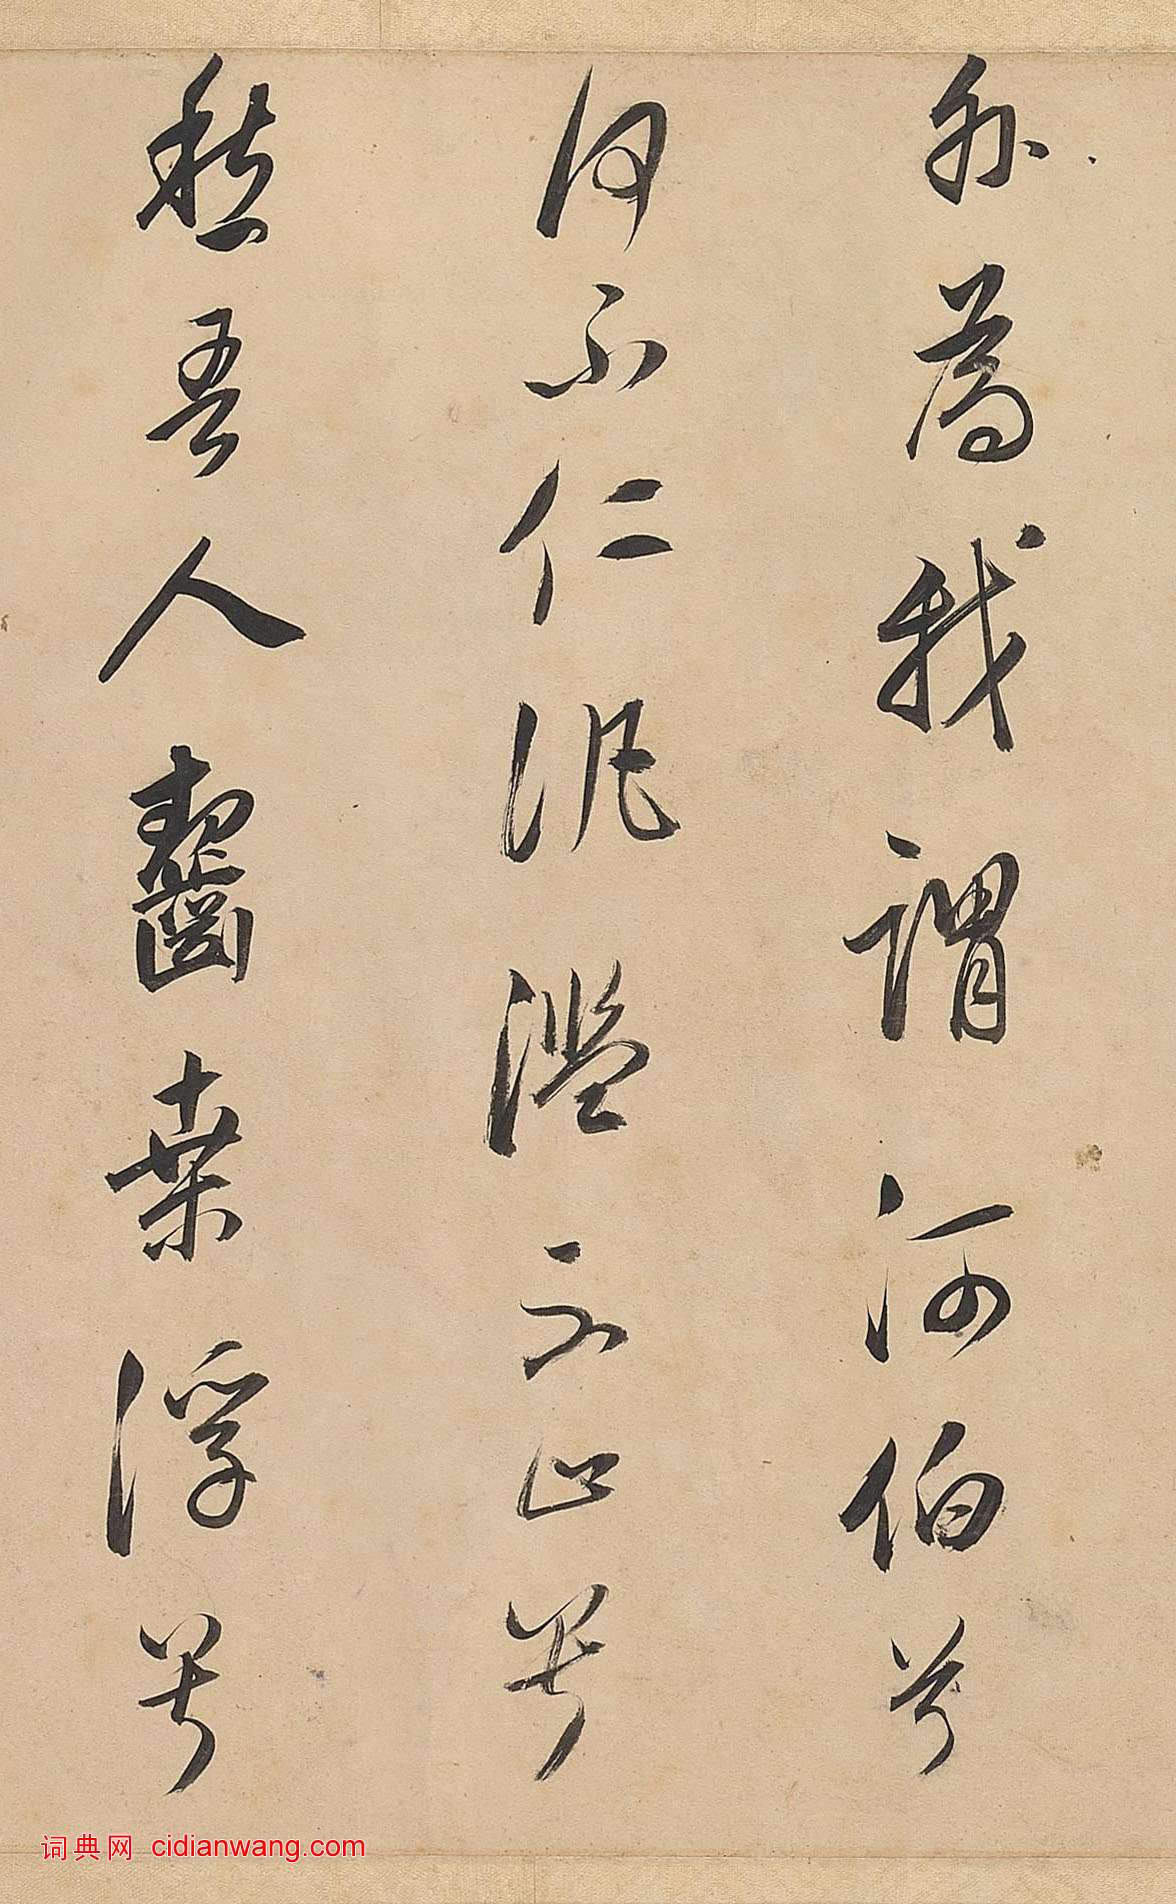 外為我謂河伯兮
何不仁泛濫不止兮
愁吾人齧桑浮兮
词典网 cidianwang.com